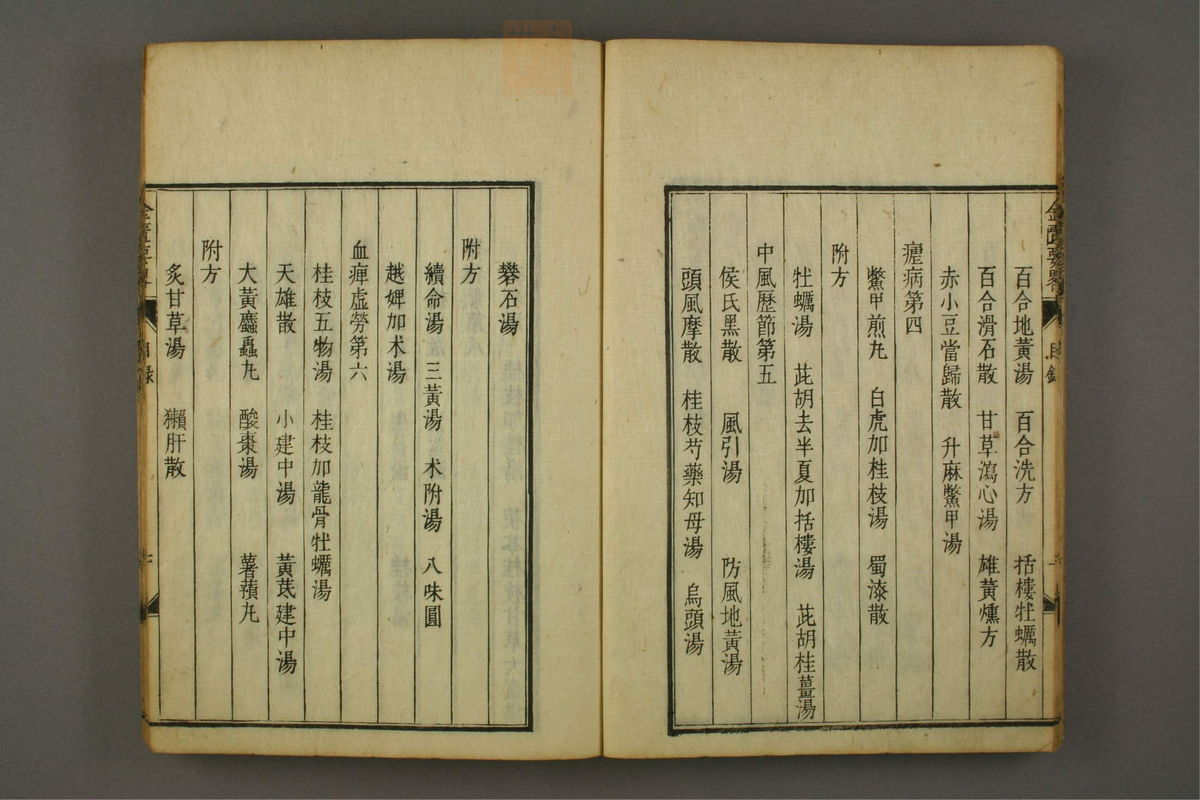 百合地黃湯　百合洗方　括樓牡蠣散
百合滑石散　甘草瀉心湯　雄黃熏方
赤小豆當歸散　升麻鱉甲湯
瘧病第四
鱉甲煎丸　白虎加桂枝湯　蜀漆散
附方
牡蠣湯　茈胡去半夏加括樓湯　茈胡桂薑湯
中風歷節第五
侯氏黑散　風引湯　防風地黃湯
頭風摩散　桂枝芍藥知母湯　烏頭湯
礬石湯
附方
續命湯　三黃湯　朮附湯　八味圓
越婢加朮湯
血痺虛勞第六
桂枝五物湯　桂枝加龍骨牡蠣湯
天雄散　小建中湯　黃芪建中湯
大黃䗪蟲丸　酸棗湯　薯蕷丸
附方
炙甘草湯　獺肝散